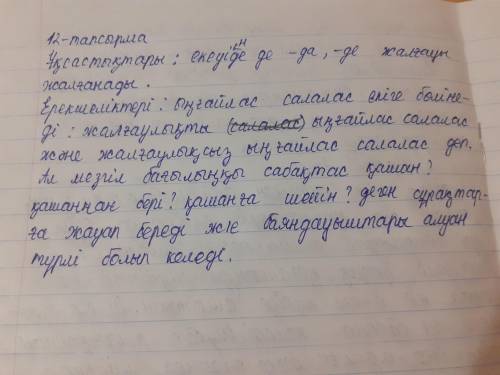 12-тапсырма
Ұқсастықтары: екеуінде де -да, -де жалғауы
жалғанады.
Ерекшеліктері: ыңғайлас салалас екіге бөліне-
ді: жалғаулықты (салалас) ыңғайлас салалас
және жалғаулықсыз ыңғайлас салалас деп.
Ал мезгіл бағыныңқы сабақтас қашан?
қашаннан бері? қашанға шейін? деген сұрақтар-
ға жауап береді және баяндауыштары алуан
түрлі болып келеді.